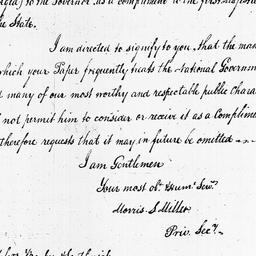 to the Governor as a compliment to the first
the State.
I am directed to signify to you, that the man
which your Paper frequently treats the National Governm
many of our most worthy and respectable public Chara
not permit him to consider or receive it as a Complime
therefore requests that it may in future be omitted
I am Gentlemen
Your most obt. Hum: Servt.
Morris S. Miller
Priv. Secy.